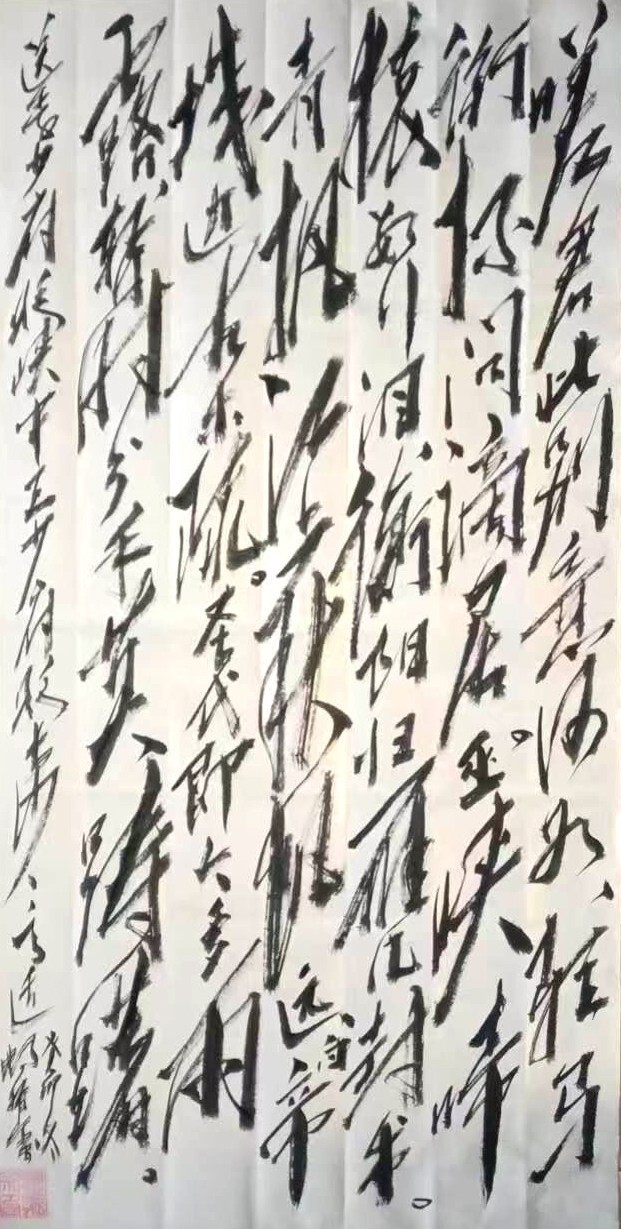 嗟君此别意何如、驻马
衔杯问谪居。巫峡啼
猿数行泪、衡阳归雁几封书。
青枫江上秋帆远、白帝
城边古木疏。圣代即今多雨
露、暂时分手莫踌躇。
送李少府贬峡中王少府贬长沙、高适
癸卯冬
书